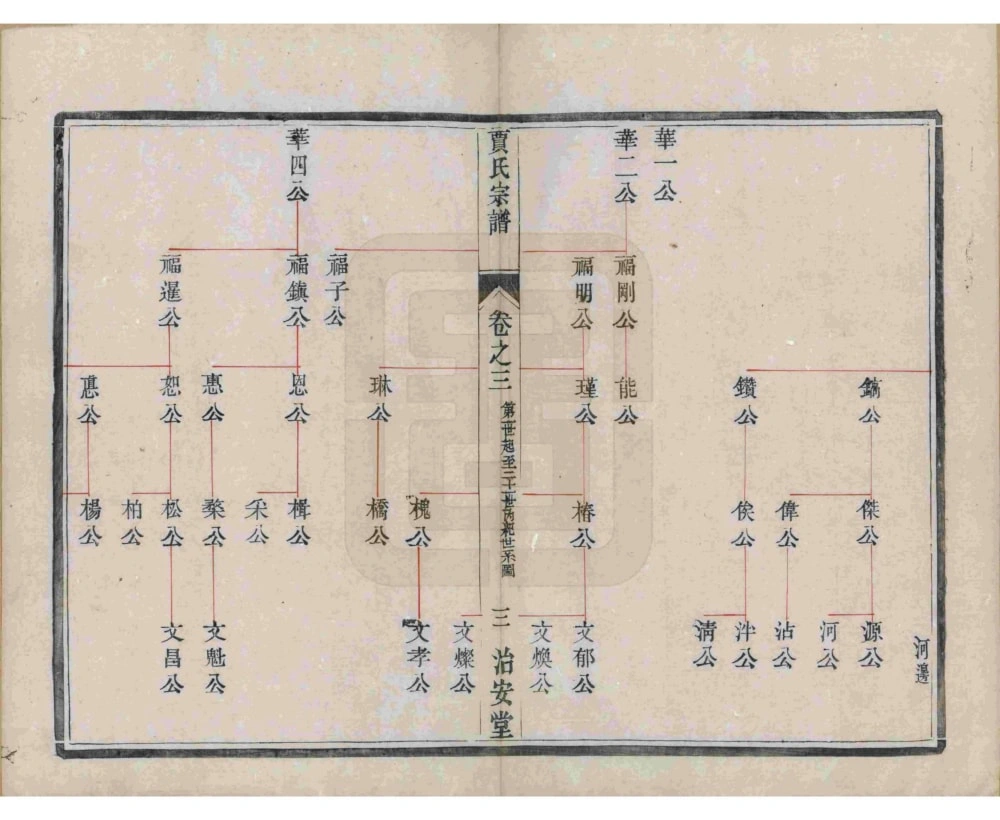 華一公
華二公
福剛公
福明公
能公
瑾公
鑽公
鎬公
椿公
俟公
偉公
傑公
文郁公
文煥公
清公
泮公
沾公
河公
源公
河邊
賈氏宗譜
卷之三
第一世起至三十世丙紀世系圖
三
治安堂
華四公
福子公
福鎮公
福暹公
琳公
恩公
惠公
恕公
槐公
橋公
楫公
采公
松公
柏公
楊公
文燦公
文孝公
文魁公
文昌公